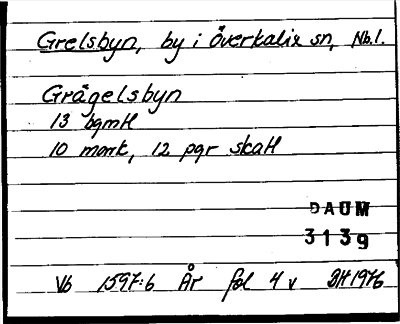 Grelsbyn, by i Överkalix sn, Nb.l.
Grägelsbyn
13 bgmtl
10 mark, 12 pgr skatt
DAUM
3139
Vb 1597:6 År fol 4 v BH 1976